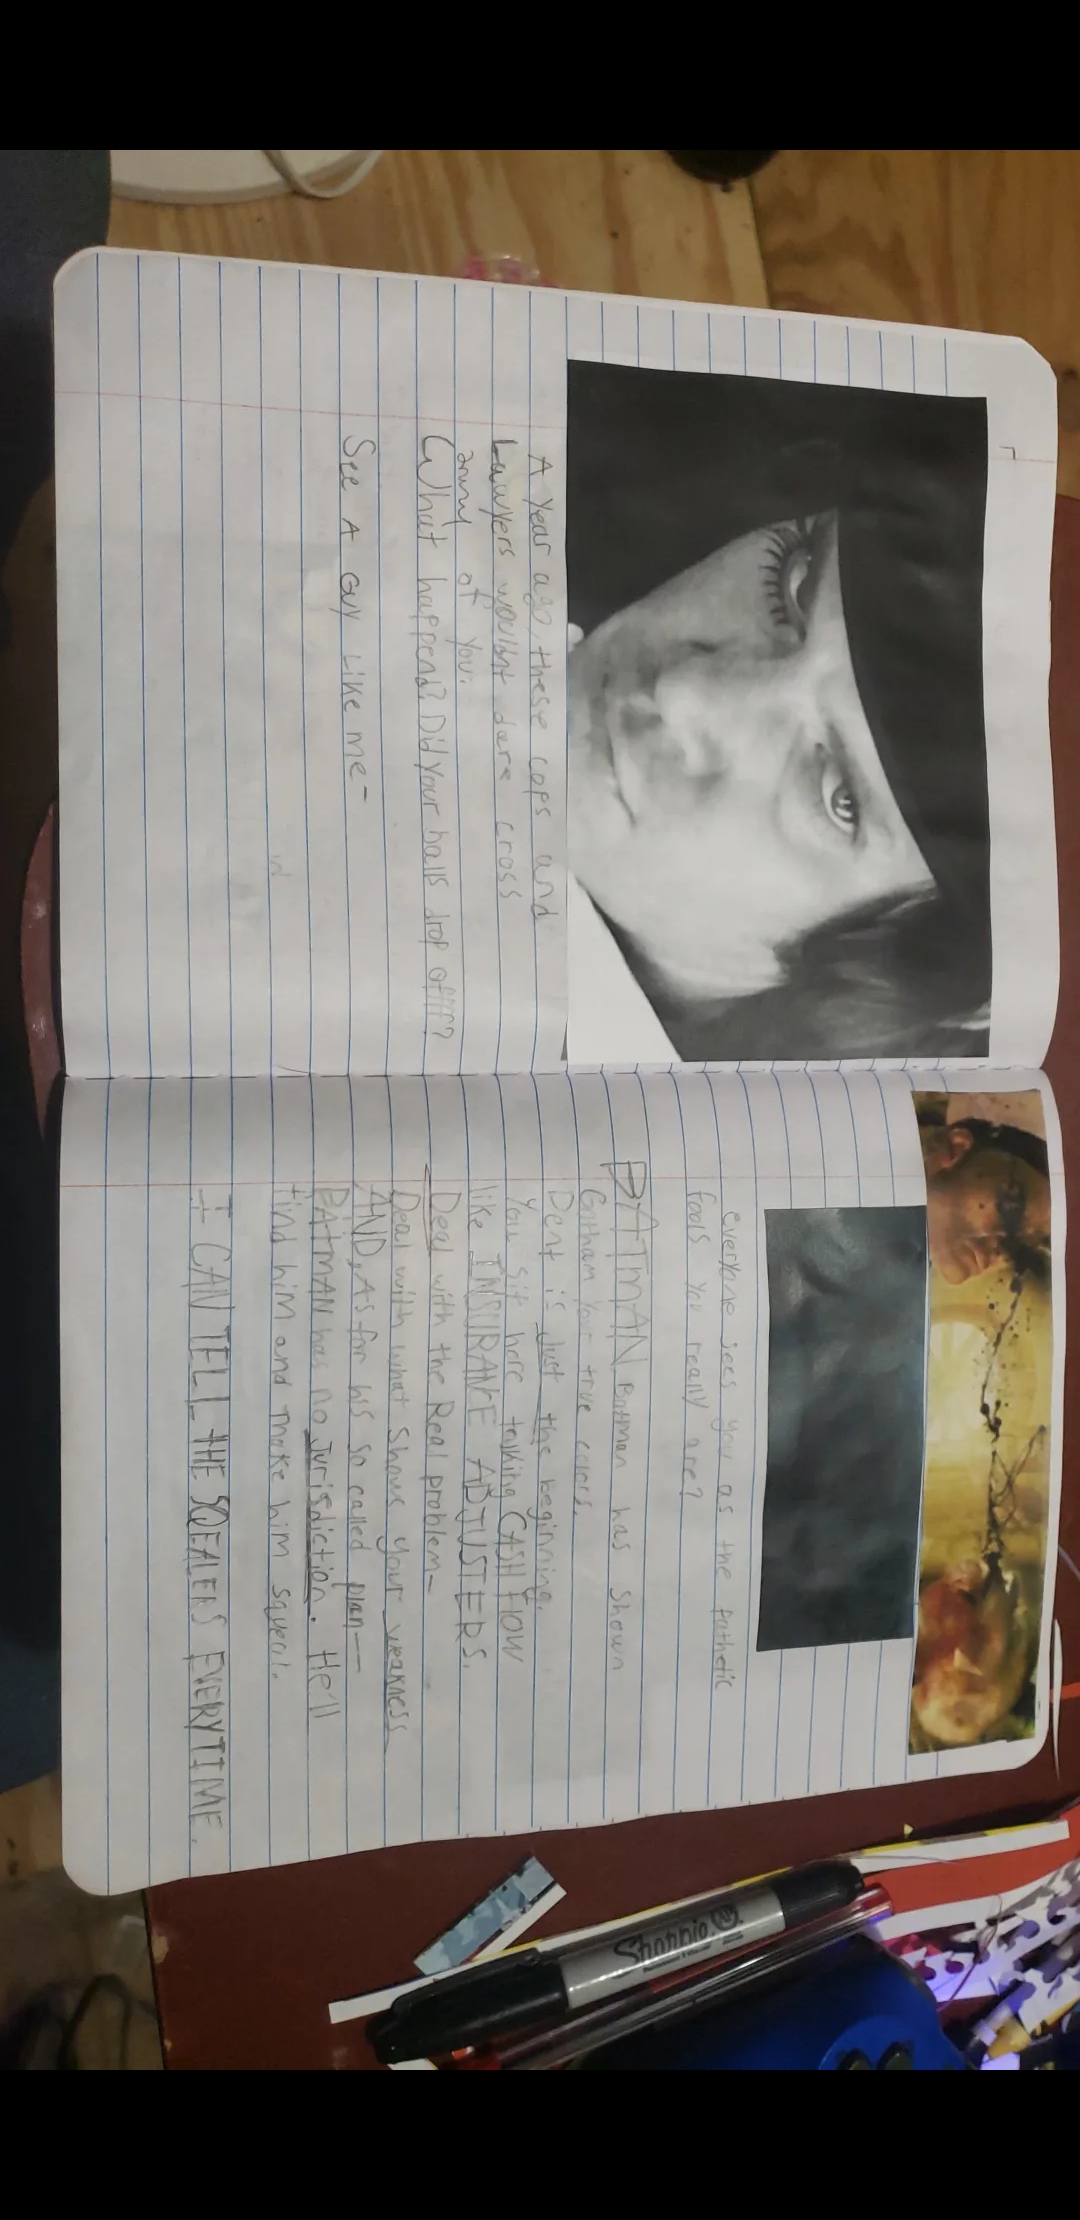 A Year ago, these cops and
Lawyers wouldnt dare cross
any of you.
What happend? Did Your balls drop offff?
See A Guy Like me-
everyone sees you as the pathetic
fools you really are?
BATMAN Batman has shown
Gotham your true colors.
Dent is Just the beginning.
You sit here talking CASH FlOW
like INSURANE ADJUSTERS.
Deal with the Real problem-
Deal with what shows your weakness
AND, As for his so called plan—
BATMAN has no Jurisdiction. He'll
find him and make him squeal.
I CAN TELL THE SQEALERS EVERYTIME.
Sharpie